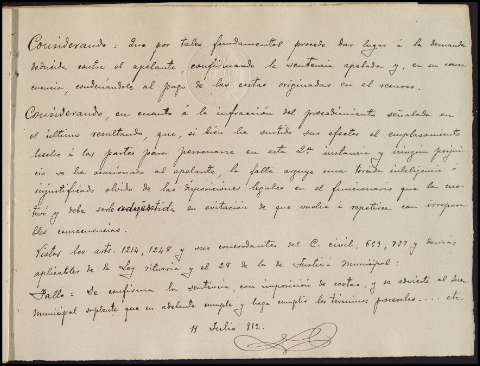 Considerando: Que por tales fundamentos procede dar lugar á la demanda
deducida contra el apelante confirmando la sentencia apelada y, en su conse
cuencia, condenándole al pago de las costas originadas en el recurso.
Considerando, en cuanto á la infracción del procedimiento señalada en
el último resultando, que, si bien ha surtido sus efectos el emplazamiento
hecho á las partes para personarse en esta 2ª instancia y ningún perjui
cio se ha ocasionado al apelante, la falta arguye una torcida inteligencia ó
injustificado olvido de las disposiciones legales en el funcionario que la mo
tivó y debe serle advertida en evitación de que vuelva á repetirse con
consecuencias.
Vistos los arts. 1214, 1248 y sus concordantes del C. civil, 659, 737 y demás
aplicables de la Ley rituaria y el 28 de la de Justicia Municipal:
Fallo: Se confirma la sentencia, con imposición de costas, y se advierte al Juez
municipal suplente que en adelante cumpla y haga cumplir los términos procesales.... etc.
11 Julio 912.